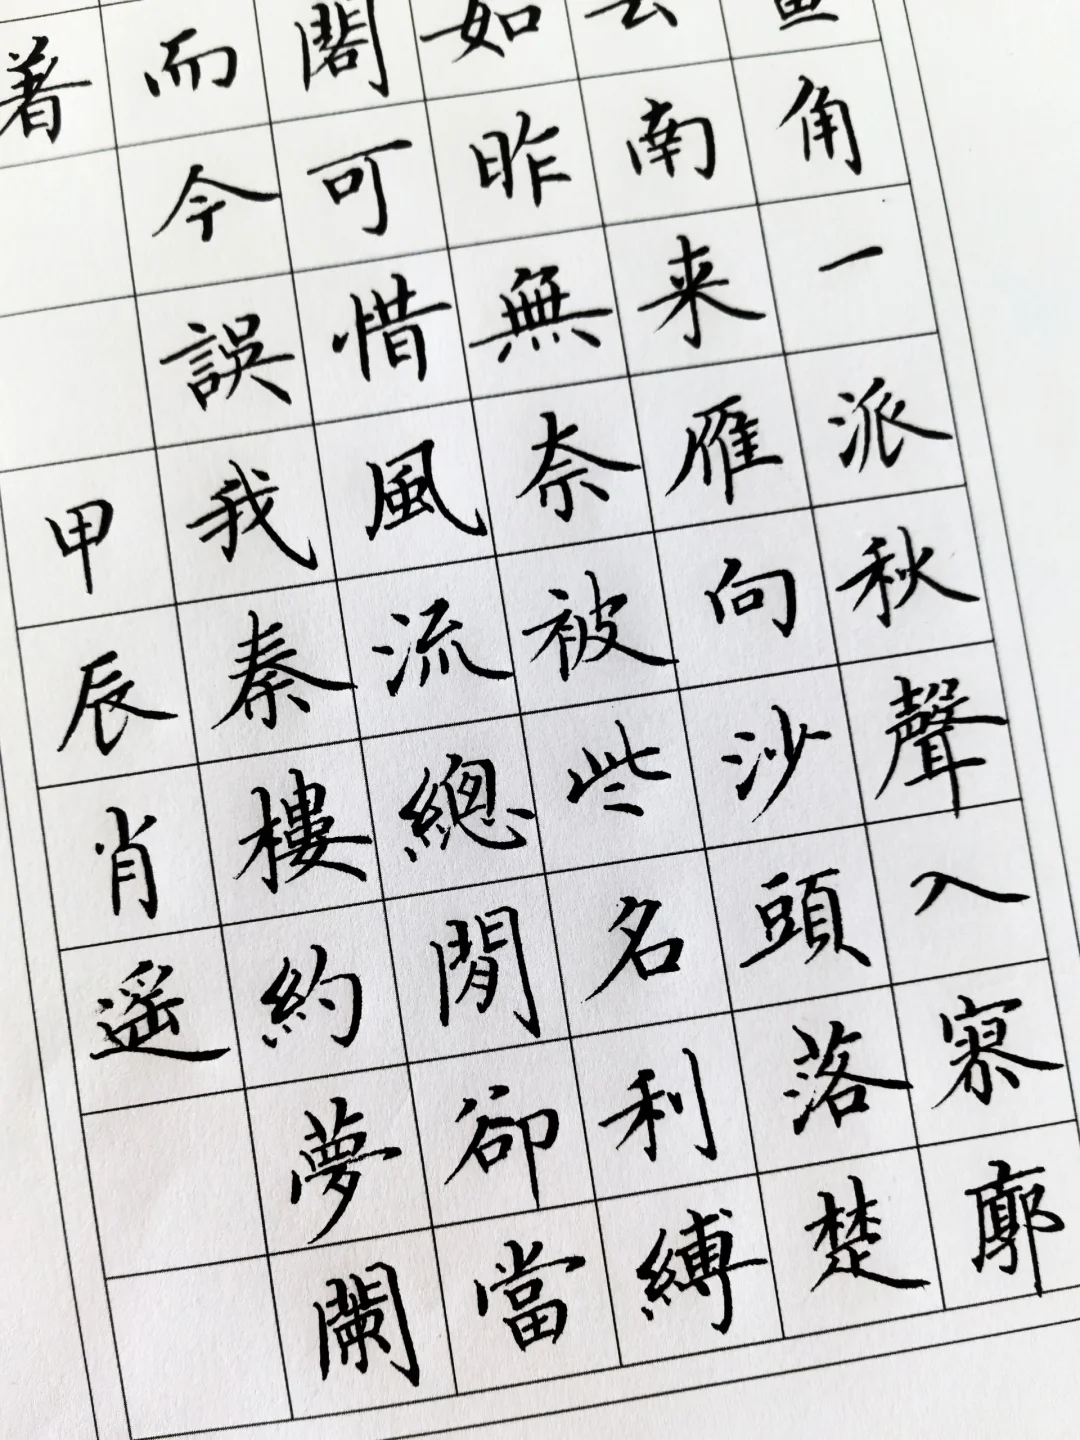 角一派秋聲入寥廓
南来雁向沙頭落楚
如昨無奈被些名利縛
閣可惜風流總閒卻當
而今誤我秦樓約夢闌
著
甲辰肖遥